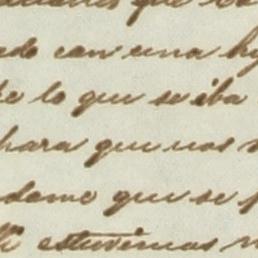 que
edo can una hi
e lo que se iba
hara que nos
dame que se p
estuvimos n